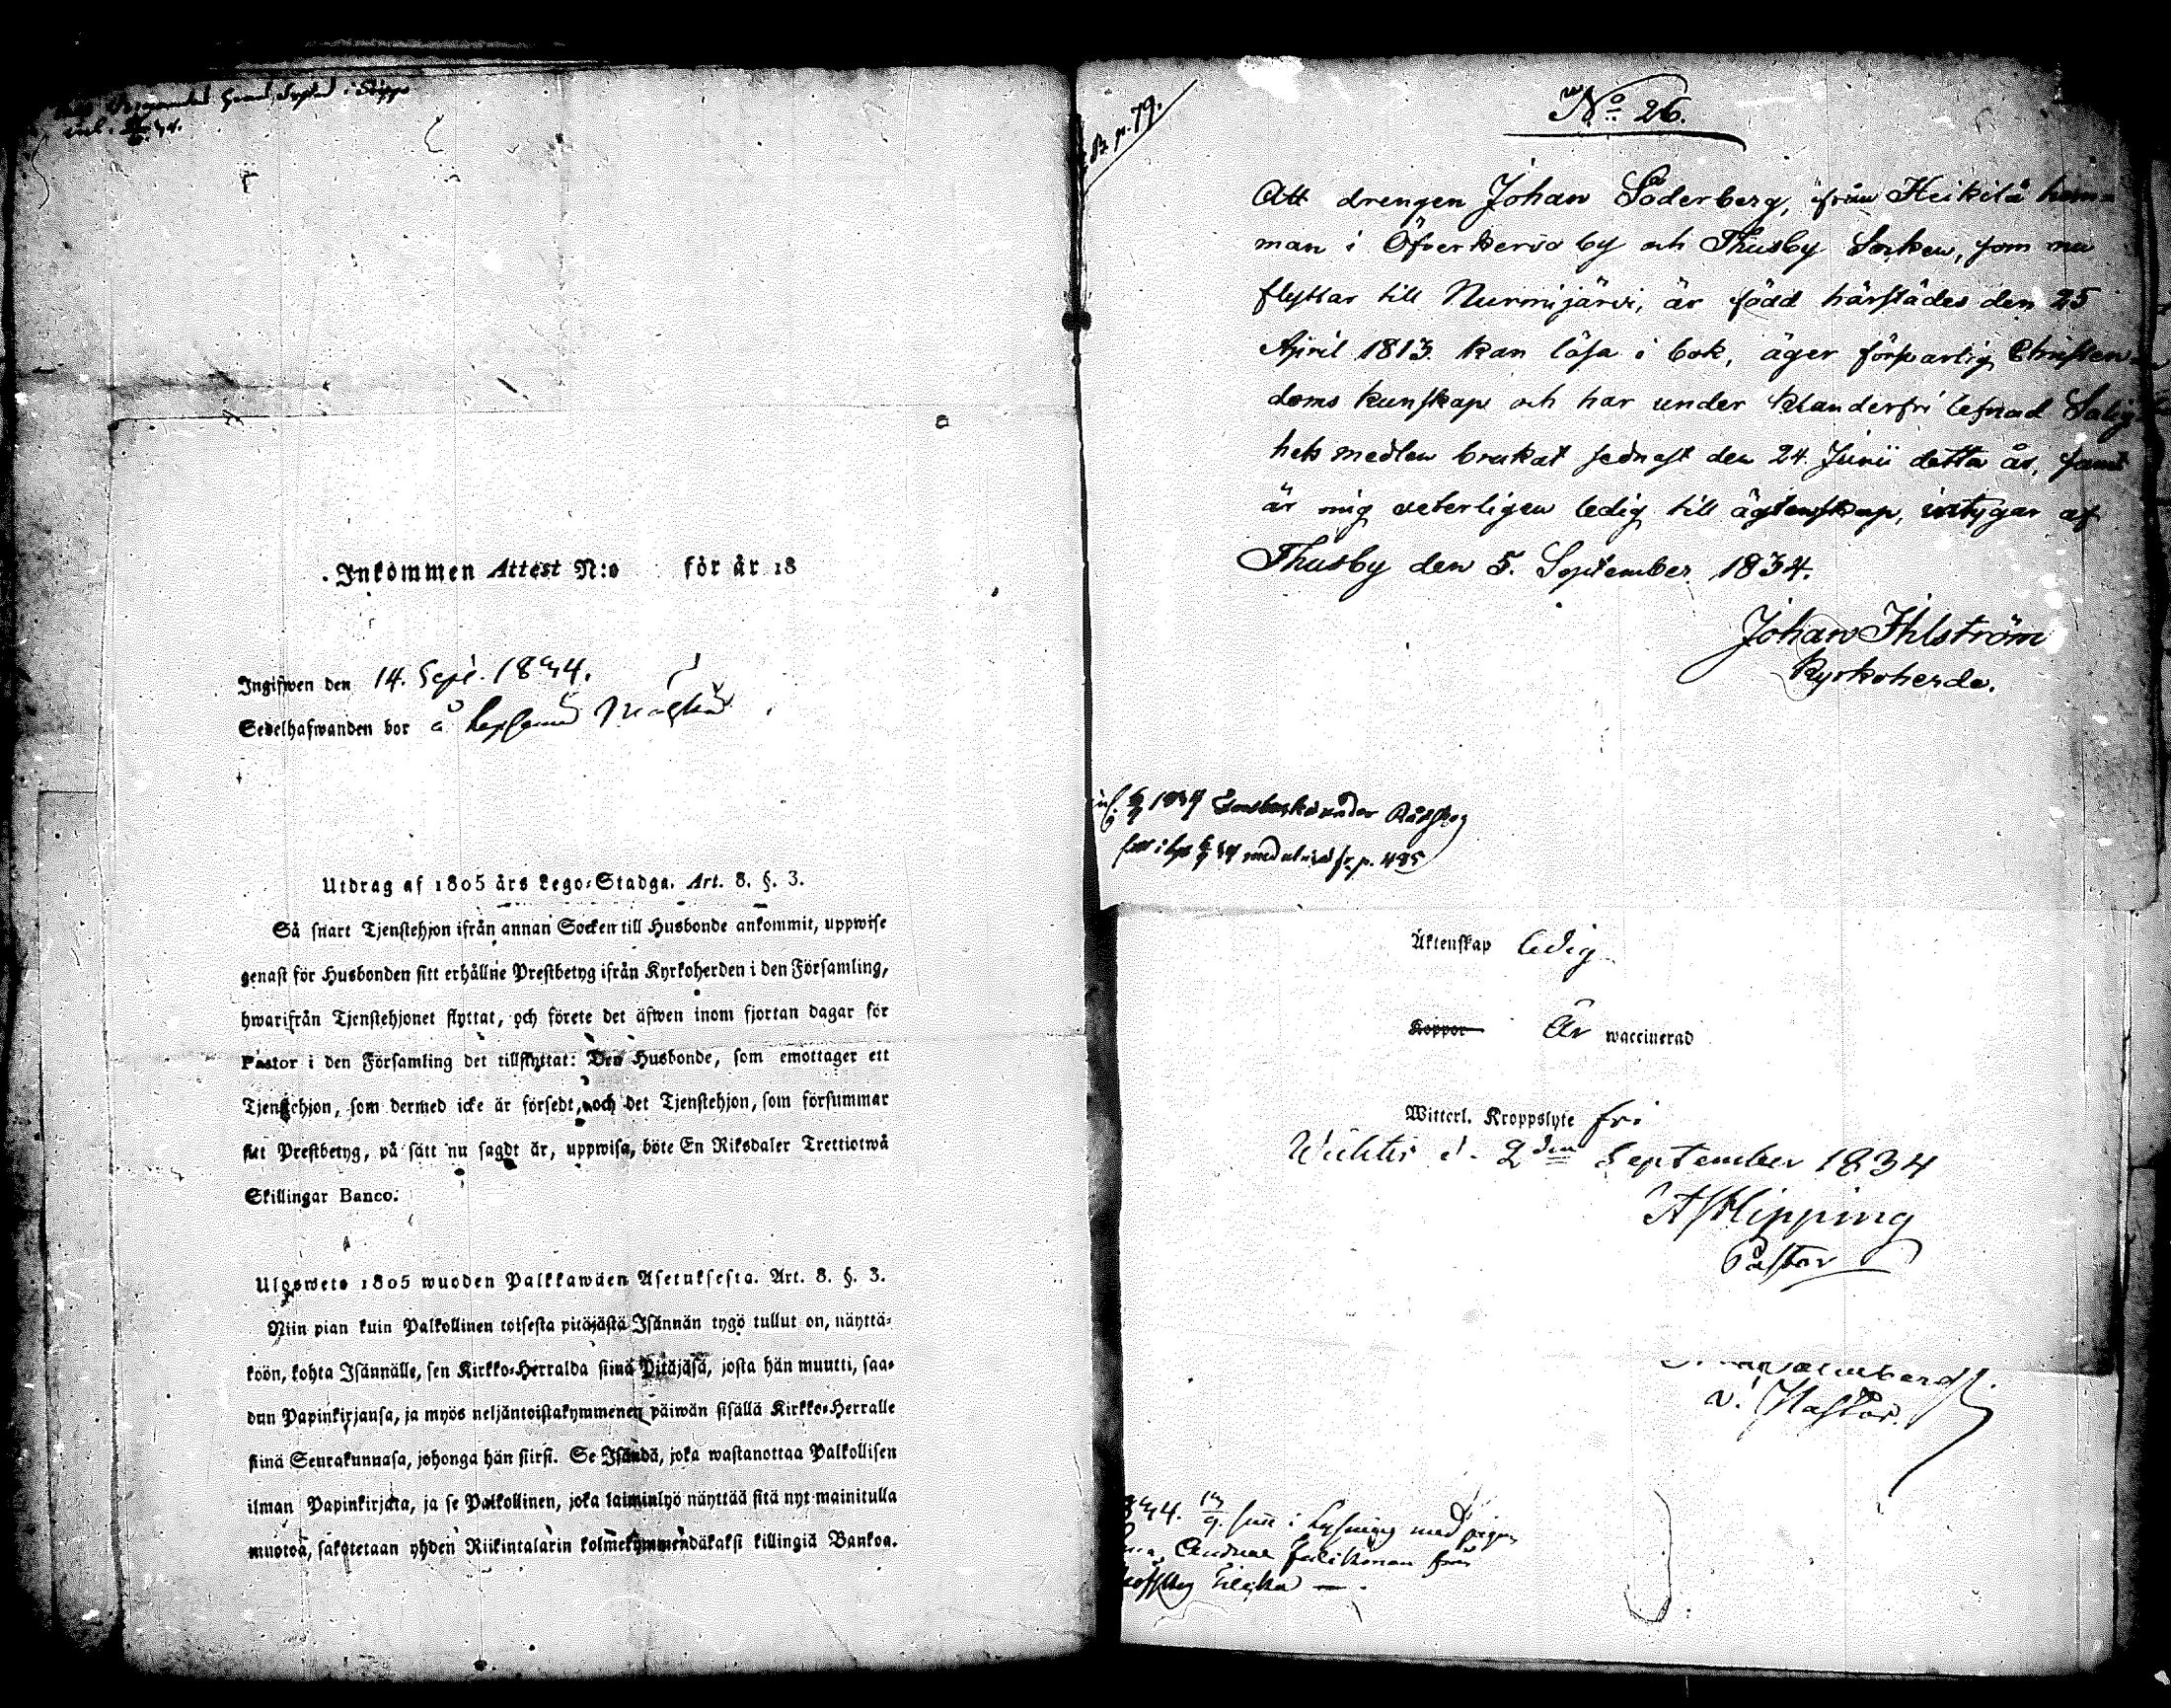 Inkommen Attest N:o för år 18
Ingifwen den 14. Sept. 1834.
Sedelhafwanden bor å
Utdrag af 1805 års Lego-Stadga. Art. 8. §. 3.
Så snart Tjenstehjon ifrån annan Socken till Husbonde ankommit, uppwise
genast för Husbonden sitt erhållne Prestbetyg ifrån Kyrkoherden i den Församling,
hwarifrån Tjenstehjonet flyttat, och förete det äfwen inom fjortan dagar för
Pastor i den Församling det tillflyttat: Den Husbonde, som emottager ett
Tjenstehjon, som dermed icke är försedt, och det Tjenstehjon, som försummar
sitt Prestbetyg, på sätt nu sagdt är, uppwisa, böte En Riksdaler Trettiotwå
Skillingar Banco.
Ulgswets 1805 wuoden Palkkawäen Asetuksesta. Art. 8. §. 3.
Niin pian kuin Palkollinen toisesta pitäjästä Isännän tygö tullut on, näyttä-
köön, kohta Isännälle, sen Kirkko-Herralda siinä Pitäjäsä, josta hän muutti, saa-
dun Papinkirjansa, ja myös neljäntoistakymmenen päiwän sisällä Kirkko-Herralle
siinä Seurakunnasa, johonga hän siirsi. Se Isändä, joka wastanottaa Palkollisen
ilman Papinkirjata, ja se Palkollinen, joka laiminlyö näyttää sitä nyt mainitulla
muotoa, sakotetaan yhden Riikintalarin kolmekymmendäkaksi killingiä Bankoa.
p. 79.
No 26.
Att drengen Johan Söderberg, ifrån Heikilä hem-
man i Öfverkervo by och Thusby Socken, som nu
flyttar till Nurmijärvi, är född härstädes den 25
April 1813. kan läsa i bok, äger försvarlig Christen-
doms kunskap och har under klanderfri lefnad Salig-
hets medlen brukat sednast den 24. Junii detta år, samt
är mig veterligen ledig till ägtenskap, intygar af
Thusby den 5. September 1834.
Johan Ihlström
Kyrkoherde.
p. 485
Äktenskap ledig
Koppor Är waccinerad
Witterl. Kroppslyte fri
Wichtis d. 2den September 1834
Hipping
Pastor
v. Pastor.
i Lysning med pigan